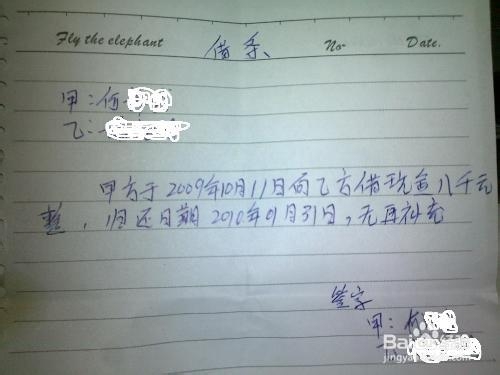 Fly the elephant 借条 No. Date.
甲:何
乙:
甲方于2009年10月11日向乙方借现金八千元
整,归还日期2010年01月31日,无再补充
签字
甲:何
Bai 经验
jingyan.